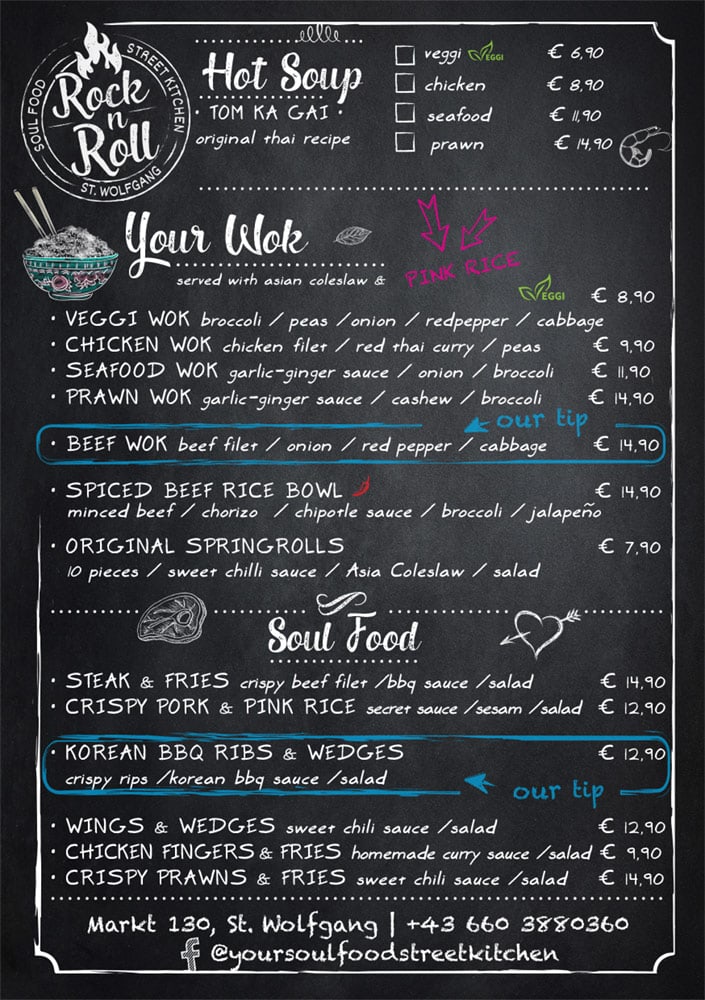 SOUL FOOD STREETKITCHEN
Rock
n
Roll
ST. WOLFGANG
Hot Soup
• TOM KA GAI •
original thai recipe
veggi VEGGI € 6,90
chicken € 8,90
seafood € 11,90
prawn € 14,90
Your Wok
served with asian coleslaw &
PINK RICE
VEGGI € 8,90
• VEGGI WOK broccoli / peas /onion / redpepper / cabbage
• CHICKEN WOK chicken filet / red thai curry / peas € 9,90
• SEAFOOD WOK garlic-ginger sauce / onion / broccoli € 11,90
• PRAWN WOK garlic-ginger sauce / cashew / broccoli € 14,90
our tip
• BEEF WOK beef filet / onion / red pepper / cabbage € 14,90
• SPICED BEEF RICE BOWL € 14,90
minced beef / chorizo / chipotle sauce / broccoli / jalapeño
• ORIGINAL SPRINGROLLS € 7,90
10 pieces / sweet chilli sauce / Asia Coleslaw / salad
Soul Food
• STEAK & FRIES crispy beef filet /bbq sauce /salad € 14,90
• CRISPY PORK & PINK RICE secret sauce /sesam /salad € 12,90
• KOREAN BBQ RIBS & WEDGES € 12,90
crispy rips /korean bbq sauce /salad
our tip
• WINGS & WEDGES sweet chili sauce /salad € 12,90
• CHICKEN FINGERS & FRIES homemade curry sauce /salad € 9,90
• CRISPY PRAWNS & FRIES sweet chili sauce /salad € 14,90
Markt 130, St. Wolfgang | +43 660 3880360
f @yoursoulfoodstreetkitchen